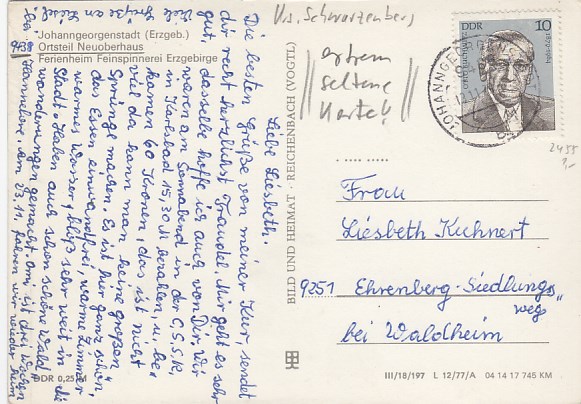 Johanngeorgenstadt (Erzgeb.)
Ortsteil Neuoberhaus
Ferienheim Feinspinnerei Erzgebirge
Liebe Liesbeth.
Die besten Grüße von meiner Kur, sendet
dir recht herzlichst Traudel. Mir geht es sehr
gut, dasselbe hoffe ich auch von Dir. Wir
waren am Sonnabend in der C.S.S.R.
in Karlsbad 15,30 M bezahlen u. be-
kamen 60 Kronen, das ist nicht
viel da kann man keine großen
Sprünge machen. Es ist hier ganz schön,
das Essen einwandfrei, warme Zimmer
warmes Wasser, bloß sehr weit in die
Stadt. Haben auch schon schöne Wald
wanderungen gemacht,
drei Wochen
Am 23.11. fahren wir wieder heim
Vrs. Schwarzenberg
extrem
seltene
Karte!!
DDR 10
JOHANNGEORGENSTADT
2455
1,-
Frau
Liesbeth Kuhnert
9251 Ehrenberg-Siedlungs
weg
bei Waldheim
BILD UND HEIMAT · REICHENBACH (VOGTL)
DDR 0,25 M
III/18/197 L 12/77/A 04 14 17 745 KM